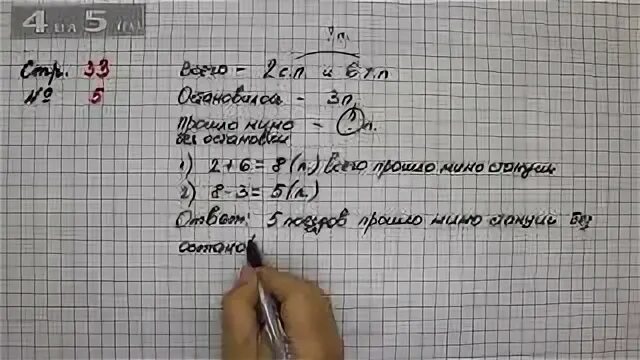 4 на 5
? п.
Стр. 33 Всего - 2 с.п. и 6 т.п
№ 5 Остановилось - 3 п.
Прошло мимо - ? п.
без остановки
1) 2 + 6 = 8 (п.) всего прошло мимо станции
2) 8 - 3 = 5 (п.)
Ответ: 5 поездов прошло мимо станции без
останов